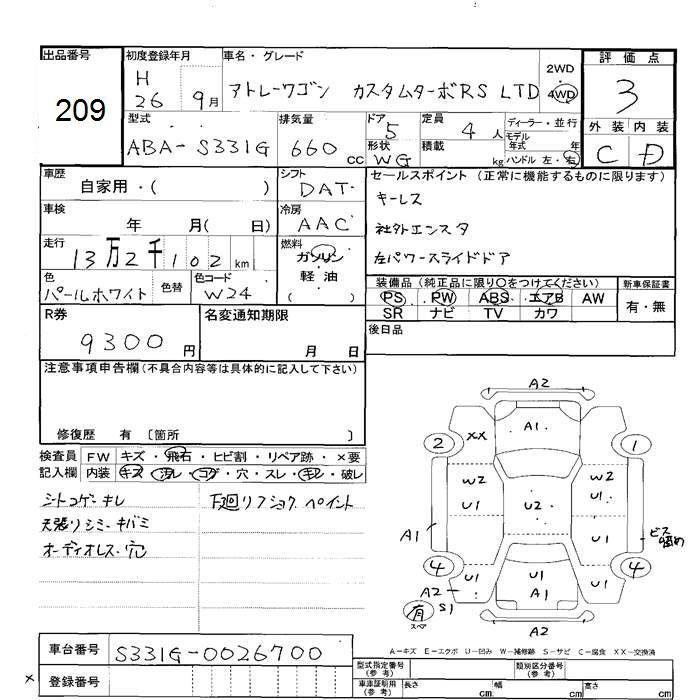 出品番号
209
初度登録年月
H
26 9月
車名・グレード
アトレーワゴン カスタムターボRS LTD
2WD
4WD
評価点
3
外装 内装
C D
型式
ABA-S331G
排気量
660 cc
ドア
5
形状
WG
定員
4 人
積載
kg
ディーラー・並行
モデル
年式 年
ハンドル 左・右
車歴
自家用・( )
シフト
DAT
セールスポイント (正常に機能するものに限ります)
キーレス
社外エンスタ
左パワースライドドア
車検
年 月( 日)
冷房
AAC
走行
13万2千102 km
燃料
ガソリン
軽油
( )
色
パールホワイト
色替
色コード
W24
装備品 (純正品に限り○をつけてください)
PS PW ABS エアB AW
SR ナビ TV カワ
新車保証書
有・無
R券
9300 円
名変通知期限
月 日
後日品
注意事項申告欄(不具合内容等は具体的に記入して下さい)
修復歴 有 〔箇所 〕
検査員
記入欄
FW キズ・飛石・ヒビ割・リペア跡・×要
内装 キズ・汚レ・コゲ・穴・スレ・キレ・破レ
シートコゲ・キレ
天張リシミ・キバミ
オーディオレス・穴
下廻リフショク ペイント
A2
A1
2 XX 1
W2 W2
U1 U2 U1
A1 U1 ビス留め
4 U1 U1 U1 4
A2 A1
S1
有
スペア
A2
A-キズ E-エクボ U-凹み W-補修跡 S-サビ C-腐食 XX-交換済
車台番号
S331G-0026700
× 登録番号
型式指定番号
(参考)
類別区分番号
(参考)
車庫証明用
(参考)
長さ cm
幅 cm
高さ cm